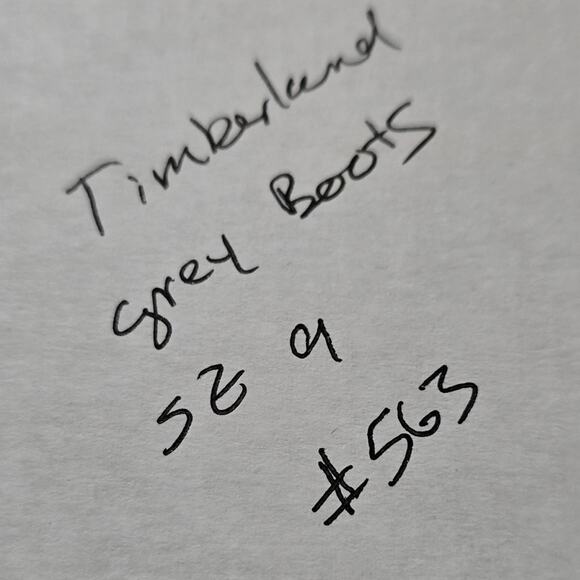 Timberland
Grey Boots
SZ 9
#563